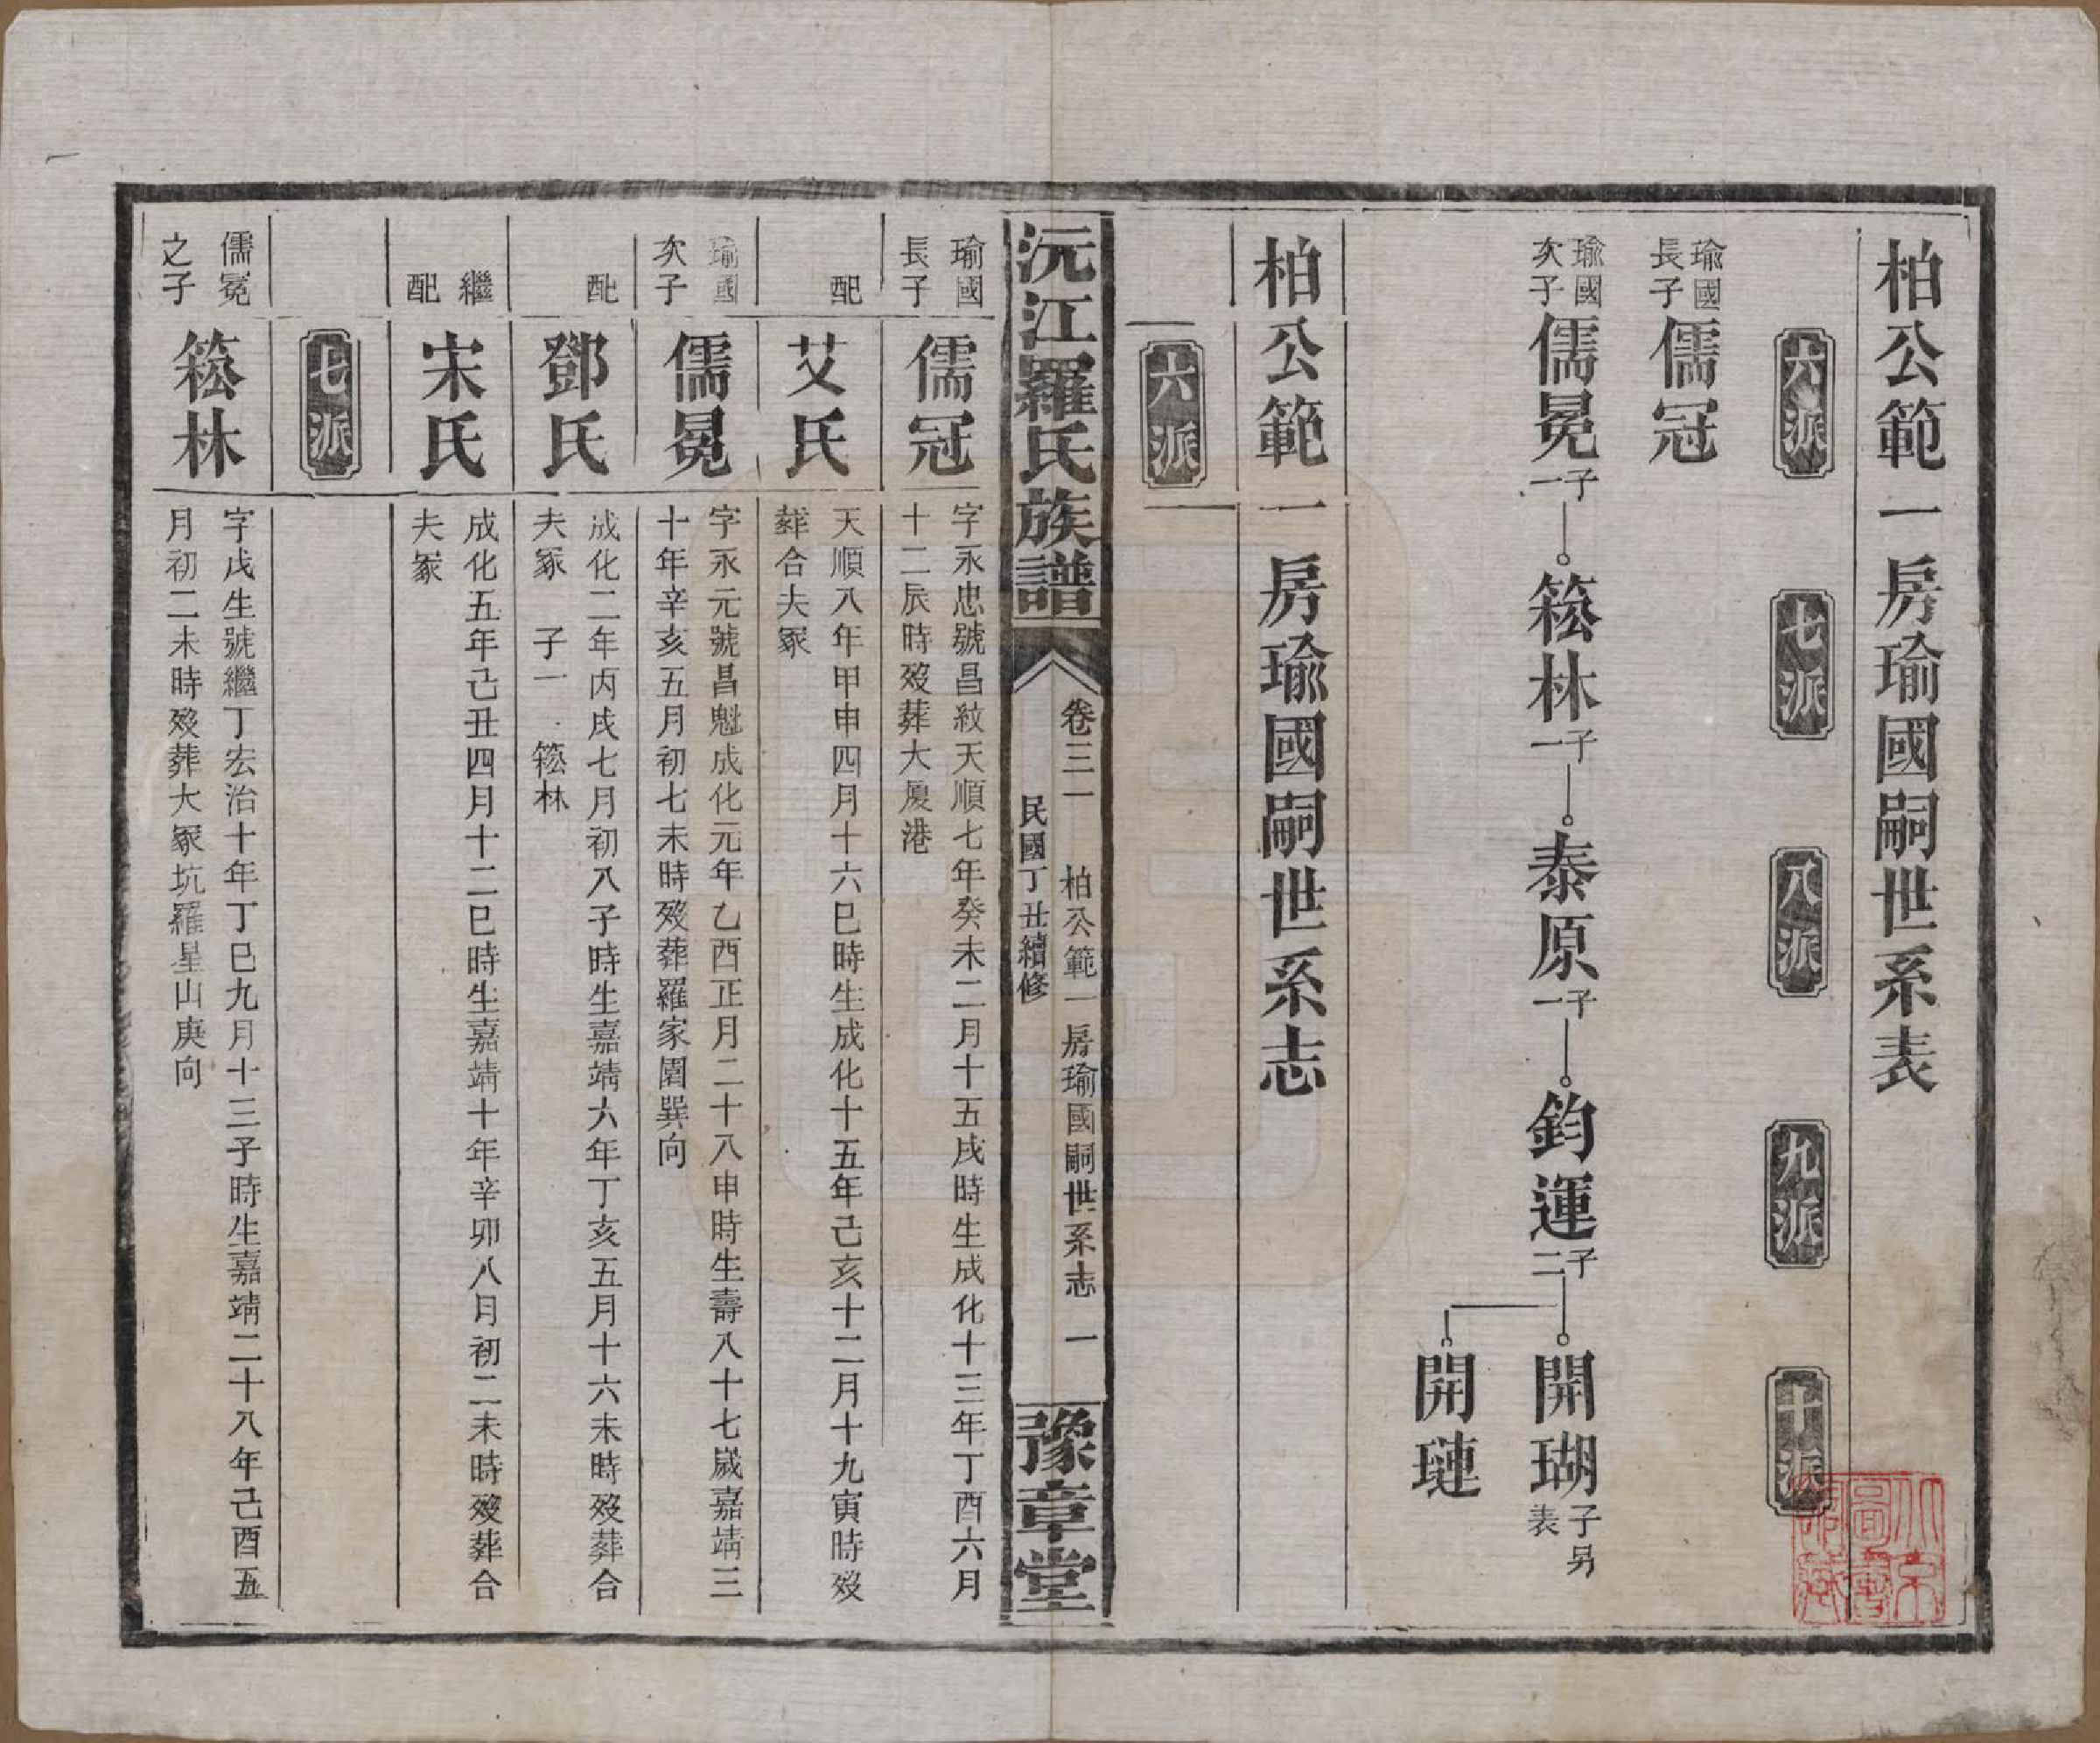 柏公範一房瑜國嗣世系表
六派
七派
八派
九派
十派
瑜國
長子
儒冠
瑜國
次子
儒冕
子一
箖林
子一
泰原
子一
鈞運
子二
開瑚
子另
表
開璉
柏公範一房瑜國嗣世系志
六派
沅江羅氏族譜
卷三一 柏公範一房瑜國嗣世系志 一
民國丁丑續修
豫章堂
瑜國
長子
儒冠
字永忠號昌紋天順七年癸未二月十五戌時生成化十三年丁酉六月
十二辰時歿葬大廈港
配
艾氏
天順八年甲申四月十六巳時生成化十五年己亥十二月十九寅時歿
葬合夫冢
瑜國
次子
儒冕
字永元號昌魁成化元年乙酉正月二十八申時生壽八十七歲嘉靖三
十年辛亥五月初七未時歿葬羅家園巽向
配
鄧氏
成化二年丙戌七月初八子時生嘉靖六年丁亥五月十六未時歿葬合
夫冢 子一 箖林
繼
配
宋氏
成化五年己丑四月十二巳時生嘉靖十年辛卯八月初二未時歿葬合
夫冢
七派
儒冕
之子
箖林
字戊生號繼丁宏治十年丁巳九月十三子時生嘉靖二十八年己酉五
月初二未時歿葬大冢坑羅星山庚向